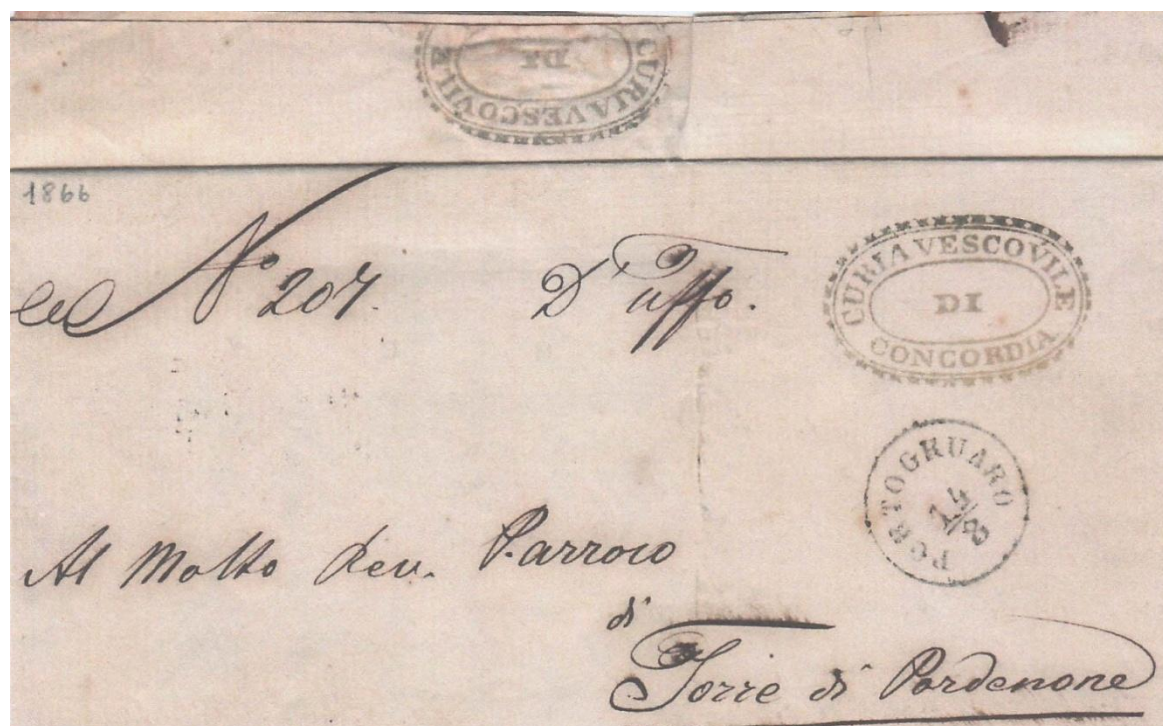 CURIA VESCOVILE
DI
1866
N° 207. D'Uffo.
CURIA VESCOVILE
DI
CONCORDIA
PORTOGRUARO
Al Molto Rev. Parroco
di
Torre di Pordenone